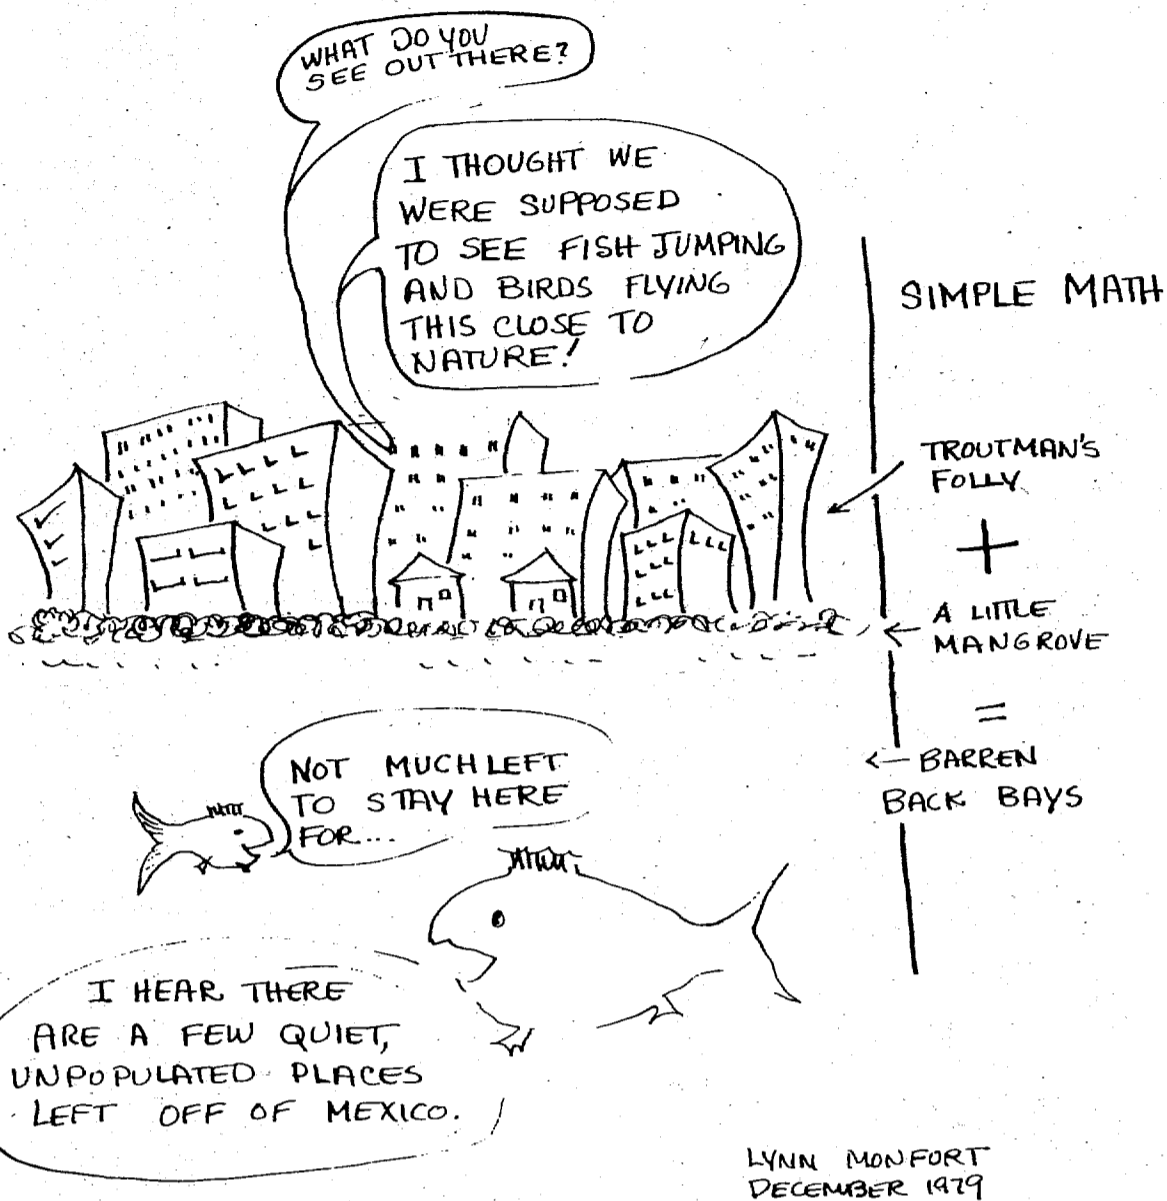 WHAT DO YOU
SEE OUT THERE?
I THOUGHT WE
WERE SUPPOSED
TO SEE FISH JUMPING
AND BIRDS FLYING
THIS CLOSE TO
NATURE!
SIMPLE MATH
TROUTMAN'S
FOLLY
+
A LITTLE
MANGROVE
=
BARREN
BACK BAYS
NOT MUCH LEFT
TO STAY HERE
FOR...
I HEAR THERE
ARE A FEW QUIET,
UNPOPULATED PLACES
LEFT OFF OF MEXICO.
LYNN MONFORT
DECEMBER 1979